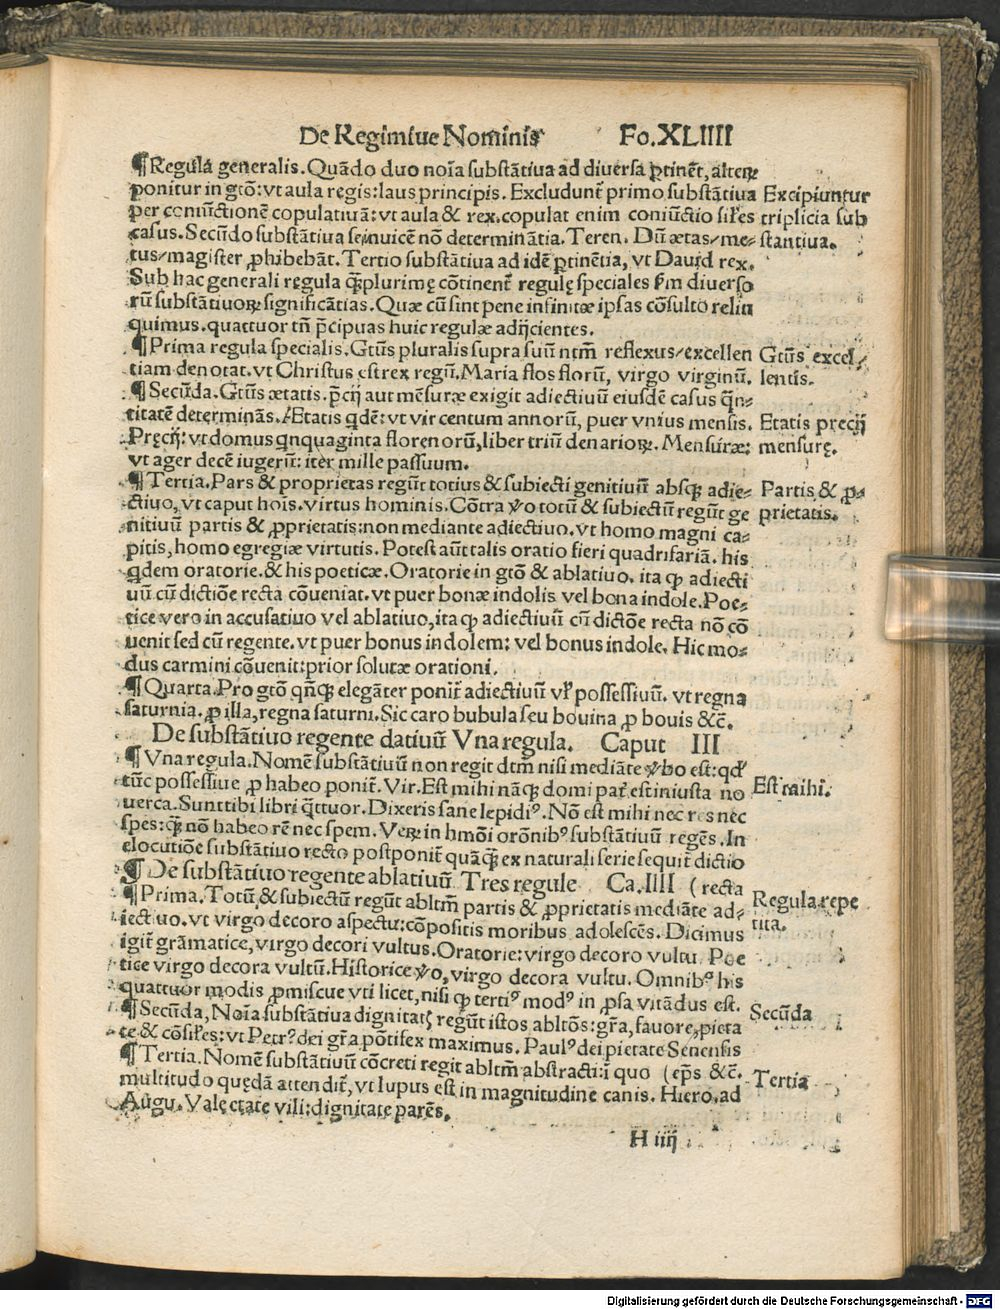 De Regimiue Nominis Fo.XLIIII
¶Regula generalis.Quãdo duo noĩa substãtiua ad diuersa ꝑtinẽt, alteꝝ
ponitur in gtõ: vt aula regis:laus principis. Excludunt᷑ primo substãtiua Excipiuntur
per coniũctionẽ copulatiuã: vt aula & rex.copulat enim coniũctio siɫes triplicia sub
casus.Secũdo substãtiua seinuicẽ nõ determinãtia.Teren. Dũ ætas/me⸗ stantiua.
tus/magister ꝓhibebãt.Tertio substãtiua ad idẽ ꝑtinẽtia, vt Dauid rex.
Sub hac generali regula q̃plurimę cõtinent᷑ regulę speciales ẜm diuerso
rũ substãtiuoꝝ significãtias.Quæ cũ sint pene infinitæ ipsas cõsulto relin
quimus.quattuor tñ p̃cipuas huic regulæ adijcientes.
¶Prima regula specialis.Gtũs pluralis supra suũ ntm̃ reflexus/excellen Gtũs excel⸗
tiam denotat.vt Christus est rex regũ.Maria flos florũ, virgo virginũ. lentis.
¶Secũda.Gtũs ætatis.p̃cij aut mẽsuræ exigit adiectiuũ eiusdẽ casus q̃n⸗
titatẽ determinãs.Aetatis qdẽ: vt vir centum annorũ, puer vnius mensis. Etatis precij
Pręcij: vt domus qnquaginta florenorũ,liber triũ denarioꝝ. Mensuræ: mensurę.
vt ager decẽ iugerũ: iter mille passuum.
¶Tertia.Pars & proprietas regũt totius & subiecti genitiuũ absq; adie⸗ Partis & ꝓ⸗
ctiuo, vt caput hoĩs.virtus hominis.Cõtra ꝟo totũ & subiectũ regũt ge prietatis.
nitiuũ partis & ꝓprietatis:non mediante adiectiuo.vt homo magni ca⸗
pitis, homo egregiæ virtutis. Potest aũt talis oratio fieri quadrifariã. his
qdem oratorie.& his poeticæ.Oratorie in gtõ & ablatiuo. ita ꝙ adiecti
uũ cũ dictiõe recta cõueniat.vt puer bonæ indolis vel bona indole.Poe⸗
tice vero in accusatiuo vel ablatiuo,ita ꝙ adiectiuũ cũ dictõe recta nõ cõ
uenit sed cũ regente.vt puer bonus indolem: vel bonus indole. Hic mo⸗
dus carmini cõuenit:prior solutæ orationi.
¶Quarta.Pro gtõ qñq; elegãter ponit᷑ adiectiuũ vɫ possessiuũ. vt regna
saturnia.ꝓ illa, regna saturni.Sic caro bubula seu bouina ꝓ bouis &c̃.
De substãtiuo regente datiuũ Vna regula. Caput III
¶Vna regula.Nomẽ substãtiuũ non regit dtm̃ nisi mediãte ꝟbo est:qđ
tũc possessiue ꝓ habeo ponit᷑.Vir.Est mihi nãq; domi pat᷑ est iniusta no Est mihi.
uerca.Sunt tibi libri q̃ttuor.Dixeris sane lepidi⁹. Nõ est mihi nec res nec
spes:q̃ nõ habeo rẽ nec spem. Veꝝ in hmõi orõnib⁹ substãtiuũ regẽs. In
elocutiõe substãtiuo recto postponit᷑ quãq̃ ex naturali serie sequit᷑ dictio
¶De substãtiuo regente ablatiuũ Tres regule Ca.IIII (recta
¶Prima.Totũ & subiectũ regũt abltm̃ partis & ꝓprietatis mediãte ad⸗ Regula repe
iectiuo.vt virgo decoro aspectu:cõpositis moribus adolescẽs. Dicimus tita.
igit᷑ grãmatice, virgo decori vultus.Oratorie: virgo decoro vultu. Poe
tice virgo decora vultũ.Historice ꝟo, virgo decora vultu. Omnib⁹ his
quattuor modis ꝓmiscue vti licet, nisi ꝙ terti⁹ mod⁹ in ꝓsa vitãdus est.
¶Secũda, Noĩa substãtiua dignitatꝭ regũt istos abltõs: gr̃a, fauore, pieta Secũda
te & cõsiɫes: vt Petr⁹ dei gr̃a põtifex maximus. Paul⁹ dei pietate Senensis
¶Tertia.Nomẽ substãtiuũ cõcreti regit abltm̃ abstracti: ĩ quo (ep̃s &c̃.
multitudo quędã attendit᷑, vt lupus est in magnitudine canis. Hiero.ad Tertia
Augu. Vale ętate vili: dignitate parẽs.
H iiij
Digitalisierung gefördert durch die Deutsche Forschungsgemeinschaft - DFG